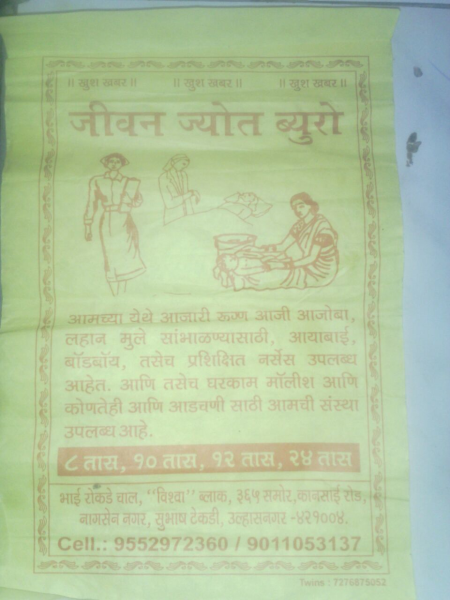 ॥ खुश खबर ॥ ॥ खुश खबर ॥ ॥ खुश खबर ॥
जीवन ज्योत ब्युरो
आमच्या येथे आजारी रूग्ण आजी आजोबा,
लहान मुले सांभाळण्यासाठी, आयाबाई,
बॉडबॉय, तसेच प्रशिक्षित नर्सेस उपलब्ध
आहेत. आणि तसेच घरकाम मॉलीश आणि
कोणतेही आणि आडचणी साठी आमची संस्था
उपलब्ध आहे.
८ तास, १० तास, १२ तास, २४ तास
भाई रोकडे चाल, "विश्वा" ब्लाक, ३६५ समोर, कानसाई रोड,
नागसेन नगर, सुभाष टेकडी, उल्हासनगर -४२१००४.
Cell.: 9552972360 / 9011053137
Twins : 7276875052